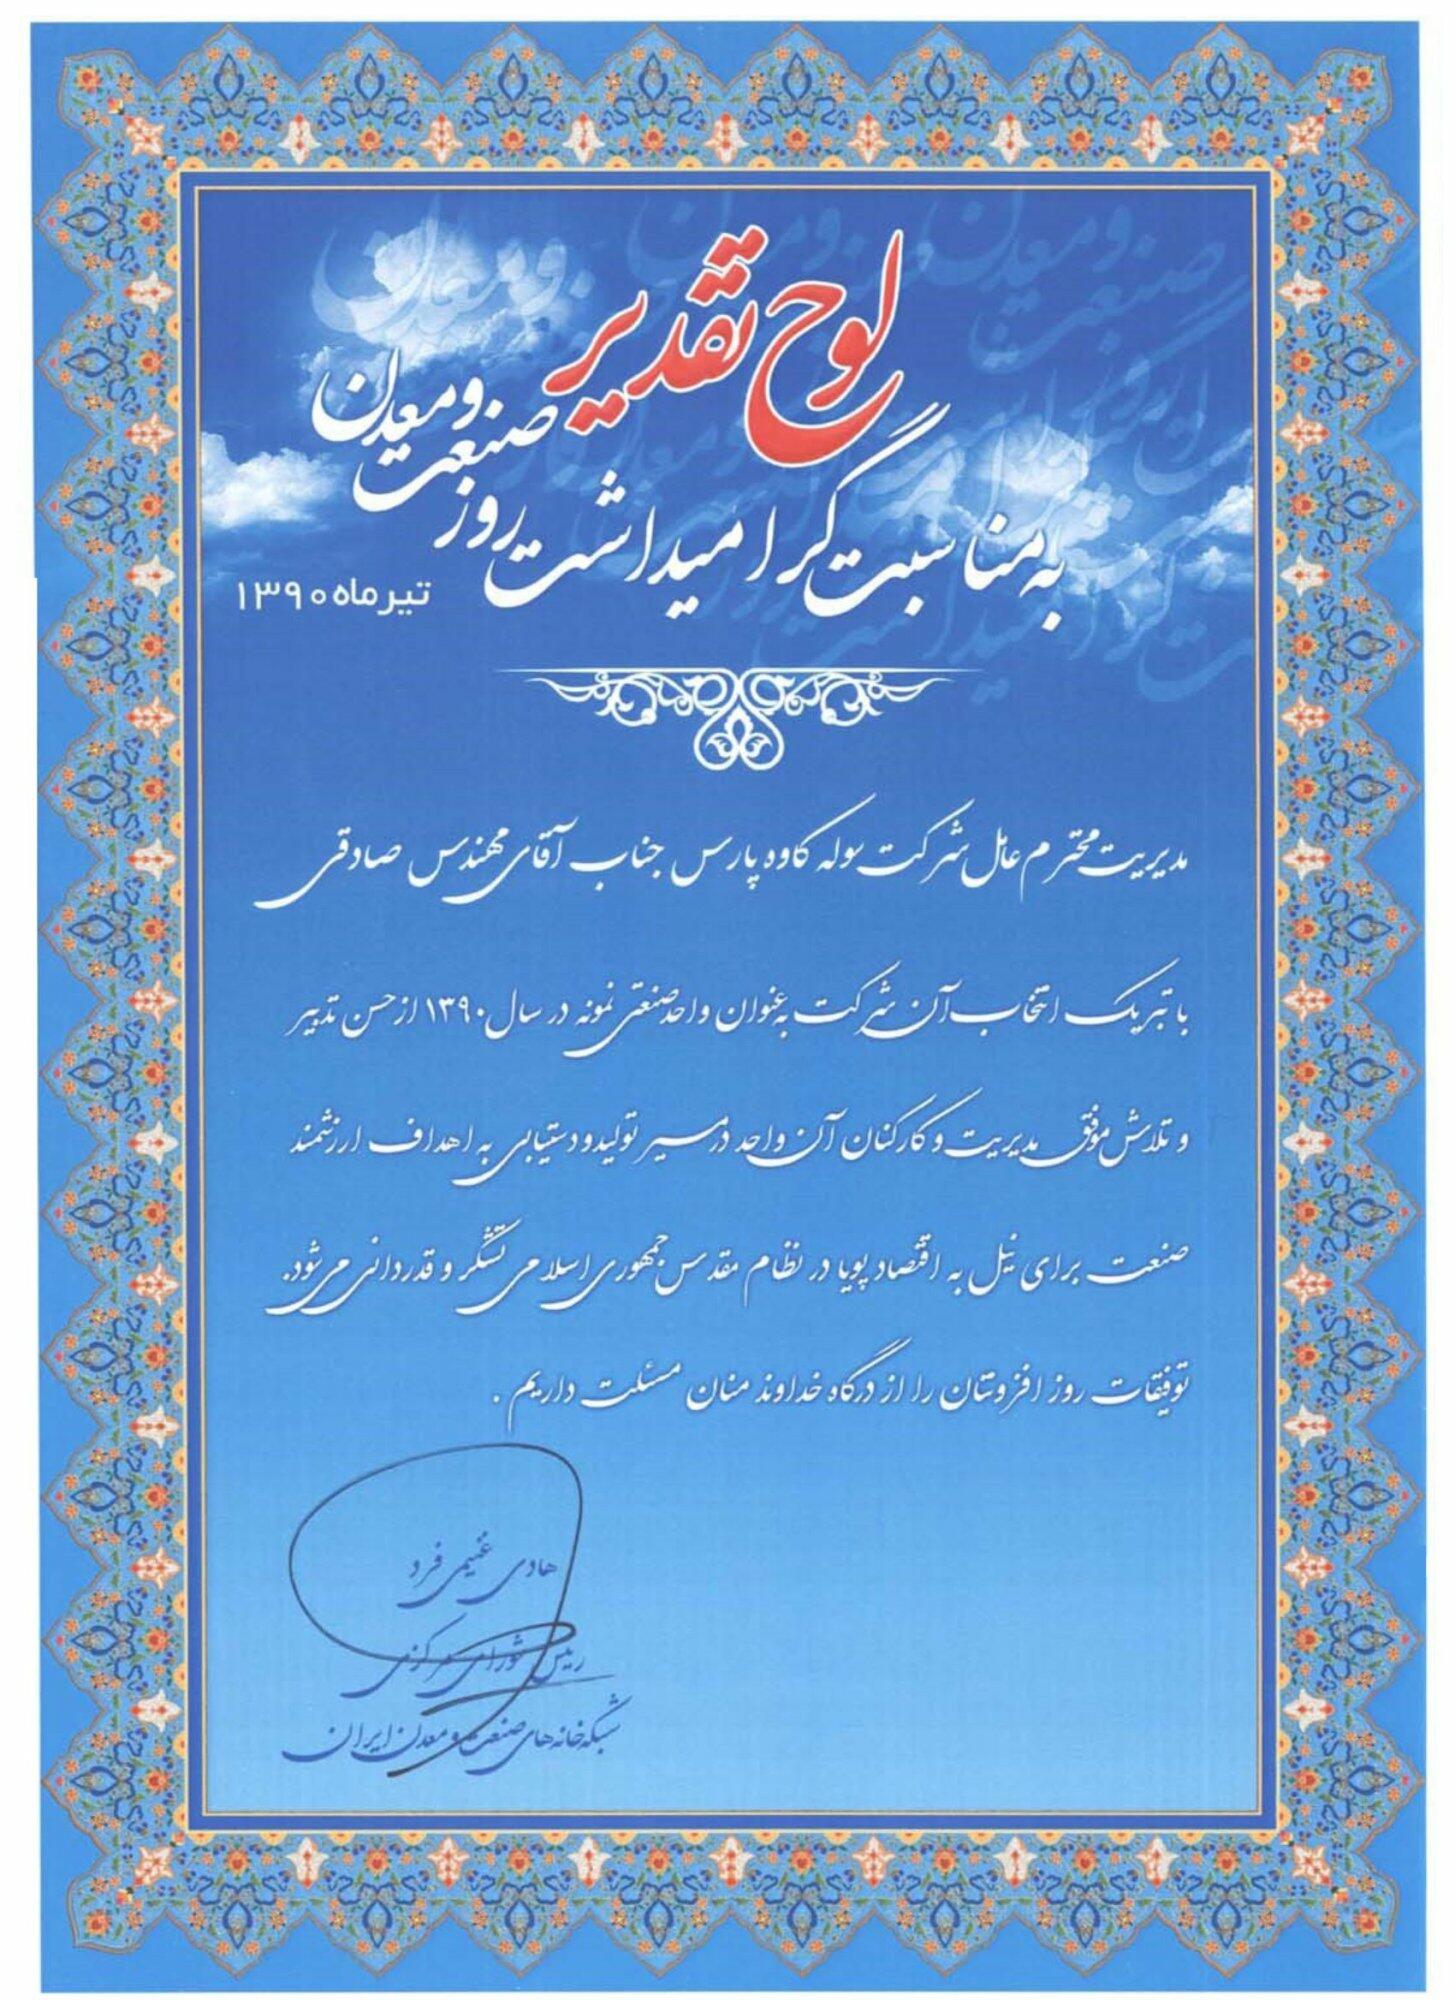 لوح تقدیر
به مناسبت گرامیداشت روز صنعت و معدن
تیر ماه ۱۳۹۰
مدیریت محترم عامل شرکت سوله کاوه پارس جناب آقای مهندس صادقی
با تبریک انتخاب آن شرکت به عنوان واحد صنعتی نمونه در سال ۱۳۹۰ از حسن تدبیر
و تلاش موفق مدیریت و کارکنان آن واحد در مسیر تولید و دستیابی به اهداف ارزشمند
صنعت برای نیل به اقتصاد پویا در نظام مقدس جمهوری اسلامی تشکر و قدردانی می شود.
توفیقات روز افزونتان را از درگاه خداوند منان مسئلت داریم .
هادی غنیمی فرد
رئیس شورای مرکزی
شبکه خانه های صنعت و معدن ایران